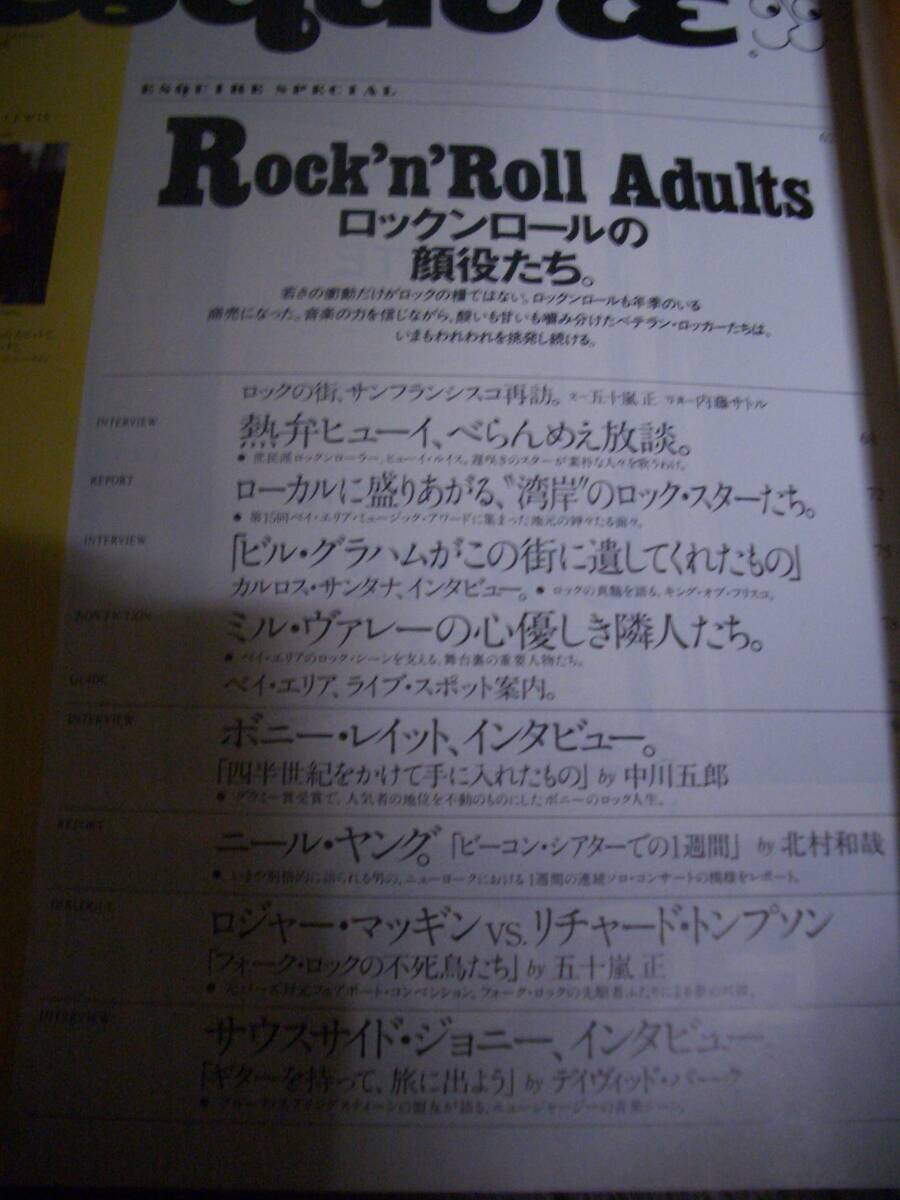 Esquire
ESQUIRE SPECIAL
LEWIS
Rock'n'Roll Adults
ロックンロールの
顔役たち。
若さの衝動だけがロックの糧ではない。ロックンロールも年季のいる
商売になった。音楽の力を信じながら、酸いも甘いも嚙み分けたベテラン・ロッカーたちは、
いまもわれわれを挑発し続ける。
ロックの街、サンフランシスコ再訪。文―五十嵐 正 写真―内藤サトル
INTERVIEW
熱弁ヒューイ、べらんめえ放談。
● 庶民派ロックンローラー、ヒューイ・ルイス。遅咲きのスターが素朴な人々を歌うわけ。
REPORT
72
ローカルに盛りあがる、“湾岸”のロック・スターたち。
● 第15回ベイ・エリア・ミュージック・アワードに集まった地元の錚々たる面々。
INTERVIEW
75
「ビル・グラハムがこの街に遺してくれたもの」
カルロス・サンタナ、インタビュー。● ロックの真髄を語る、キング・オブ・フリスコ。
NONFICTION
ミル・ヴァレーの心優しき隣人たち。
● ベイ・エリアのロック・シーンを支える、舞台裏の重要人物たち。
GUIDE
ベイ・エリア、ライブ・スポット案内。
INTERVIEW
ボニー・レイット、インタビュー。
「四半世紀をかけて手に入れたもの」by 中川五郎
● グラミー賞受賞で、人気者の地位を不動のものにしたボニーのロック人生。
REPORT
ニール・ヤング。「ビーコン・シアターでの1週間」 by 北村和哉
● いまや別格的に語られる男の、ニューヨークにおける1週間の連続ソロ・コンサートの模様をレポート。
DIALOGUE
ロジャー・マッギン vs. リチャード・トンプソン
「フォーク・ロックの不死鳥たち」by 五十嵐 正
● 元バーズ対元フェアポート・コンベンション。フォーク・ロックの先駆者ふたりによる
INTERVIEW
サウスサイド・ジョニー、インタビュー
「ギターを持って、旅に出よう」by デイヴィッド・バーク
● ブルース・スプリングスティーンの盟友が語る、ニュージャージーの音楽シーン。